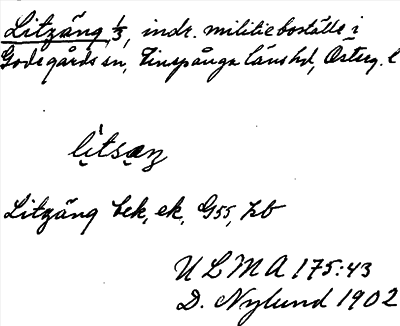 Litzäng 1/3, indr. militieboställe i
Godegårds sn, Finspånga läns hd, Österg. l
litsæŋ
Litzäng bek, ek, G55, kb
ULMA 175:43
D. Nylund 1902